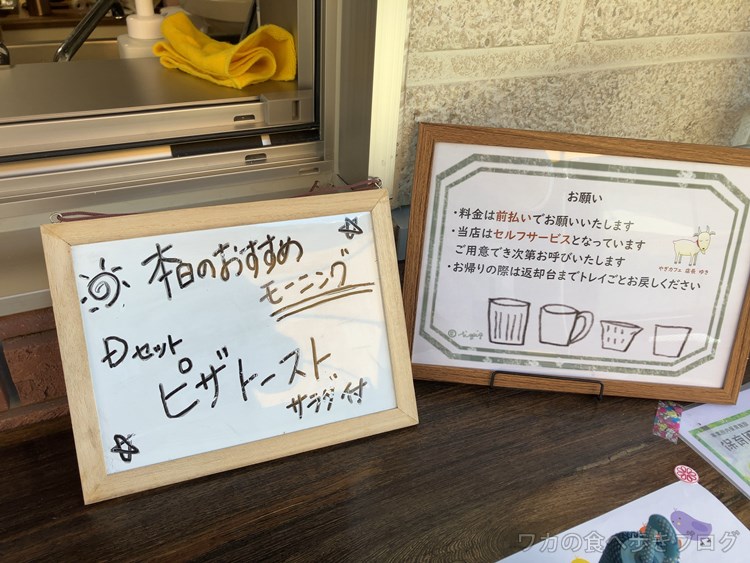 本日のおすすめ
モーニング
Dセット
ピザトースト
サラダ付
お願い
・料金は前払いでお願いいたします
・当店はセルフサービスとなっています
ご用意でき次第お呼びいたします
・お帰りの際は返却台までトレイごとお戻しください
やぎカフェ 店長 ゆき
保育
ワカの食べ歩きブログ